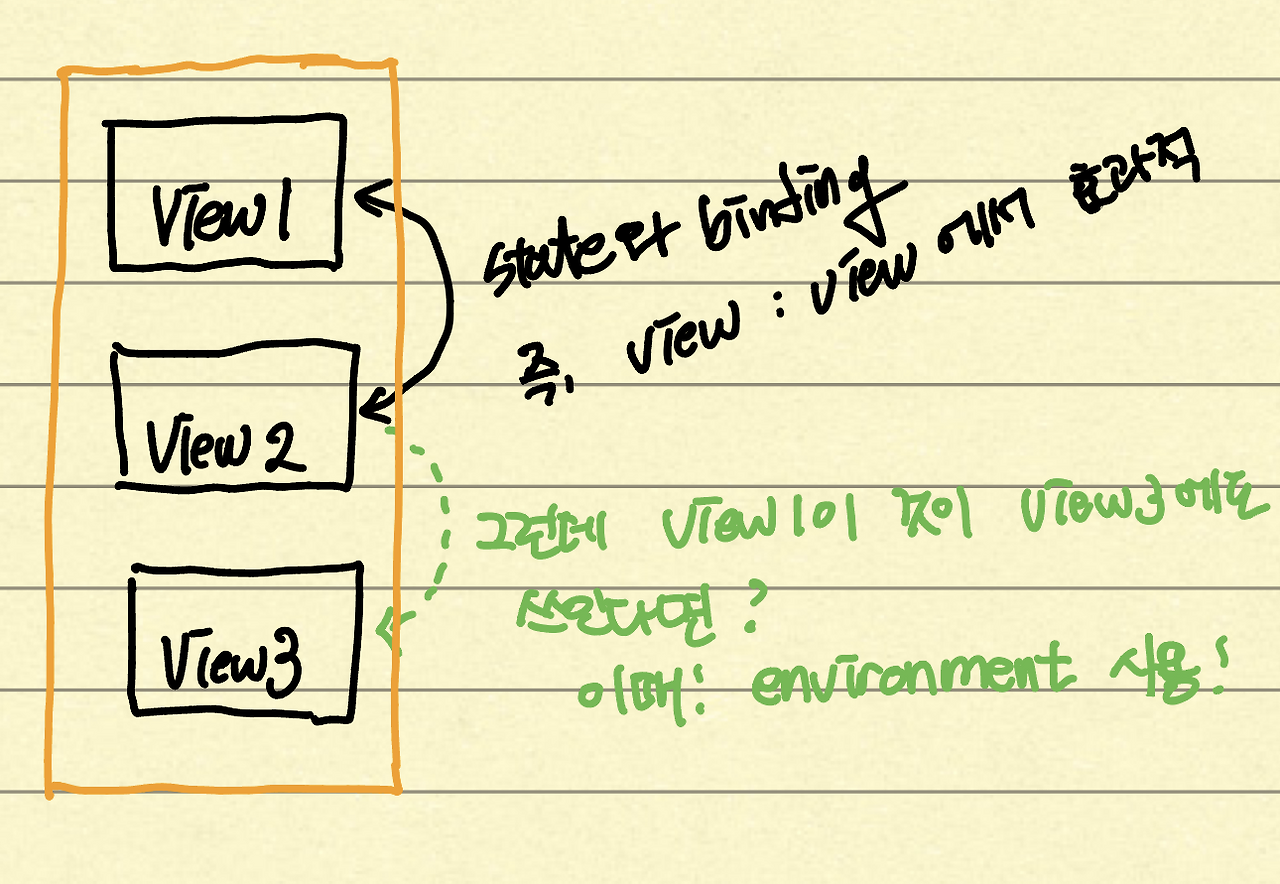 View 1
State와 binding
즉, view : view 에서 효과적
View 2
그런데 View1이 것이 View3에도
쓰인다면?
이때! environment 사용!
View 3